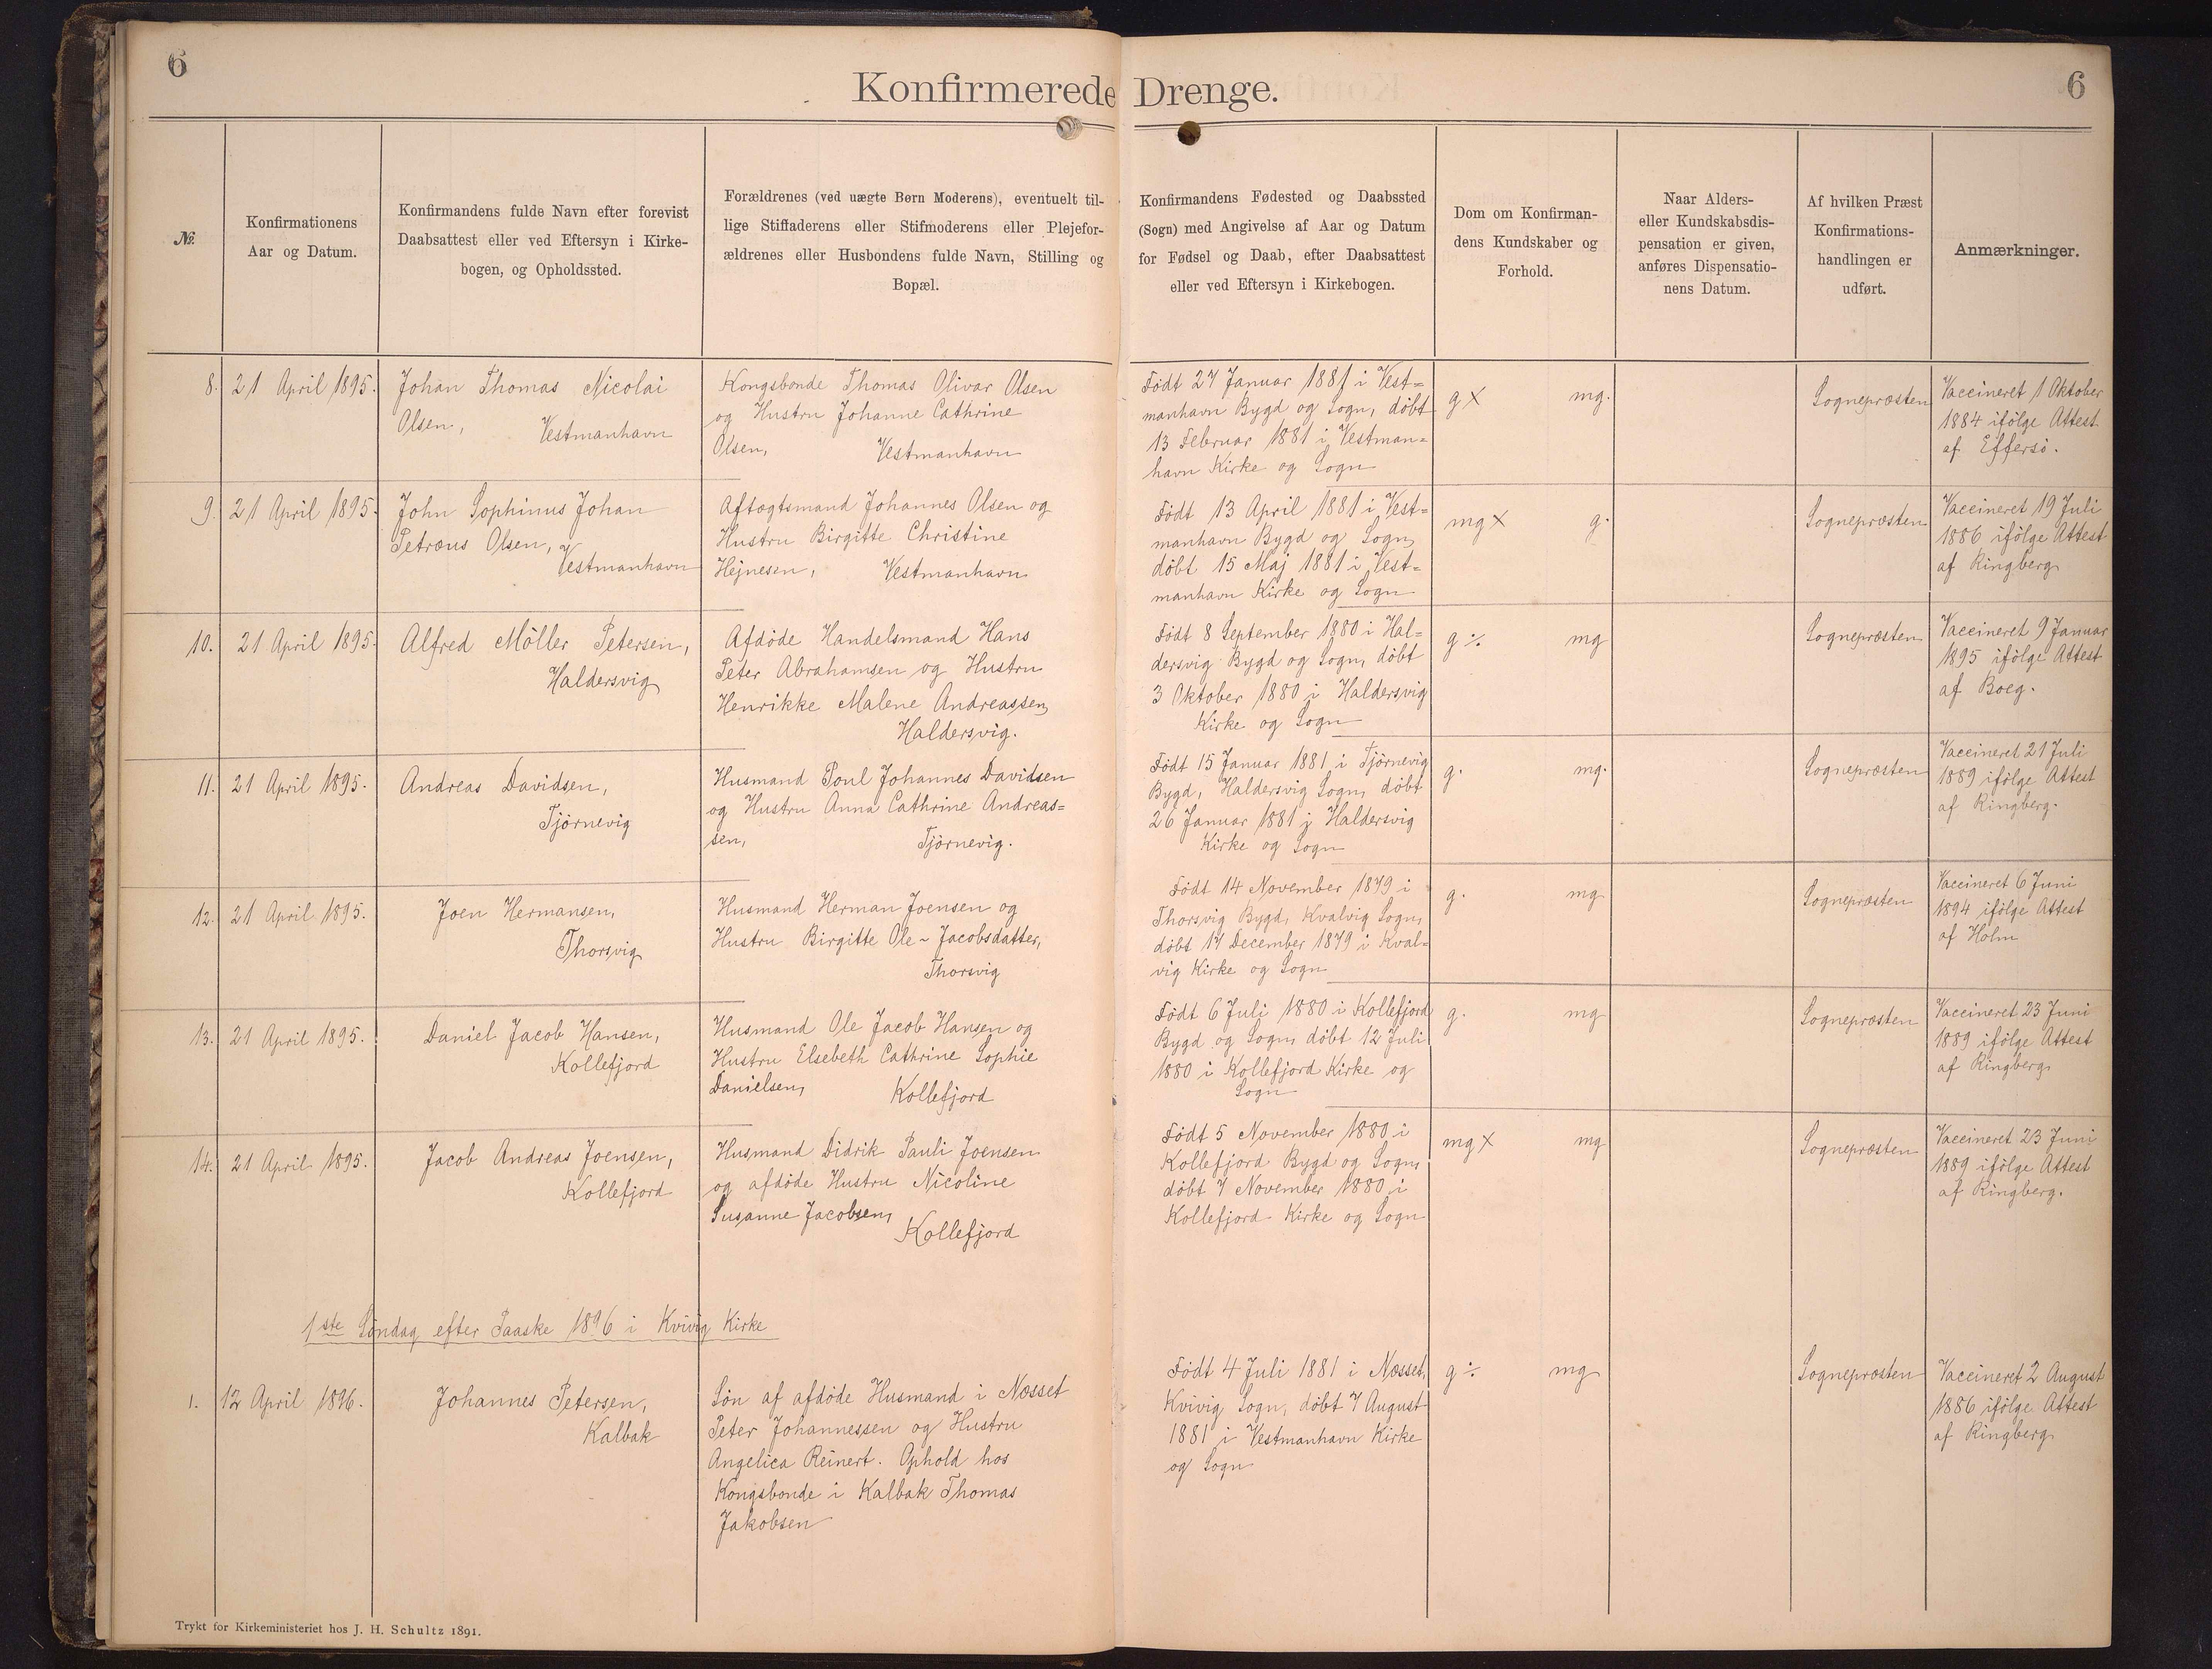 6
Konfirmerede Drenge.
6
№.
Konfirmationens
Aar og Datum.
Konfirmandens fulde Navn efter forevist
Daabsattest eller ved Eftersyn i Kirke-
bogen, og Opholdssted.
Forældrenes (ved uægte Børn Moderens), eventuelt til-
lige Stiffaderens eller Stifmoderens eller Plejefor-
ældrenes eller Husbondens fulde Navn, Stilling og
Bopæl.
Konfirmandens Fødested og Daabssted
(Sogn) med Angivelse af Aar og Datum
for Fødsel og Daab, efter Daabsattest
eller ved Eftersyn i Kirkebogen.
Dom om Konfirman-
dens Kundskaber og
Forhold.
Naar Alders-
eller Kundskabsdis-
pensation er given,
anføres Dispensatio-
nens Datum.
Af hvilken Præst
Konfirmations-
handlingen er
udført.
Anmærkninger.
8.
21 April 1895.
Johan Thomas Nicolai
Olsen,
Vestmanhavn
Kongsbonde Thomas Olivar Olsen
og Hustru Johanne Cathrine
Olsen,
Vestmanhavn
Født 27 Januar 1881 i Vest=
manhavn Bygd og Sogn, døbt
13 Februar 1881 i Vestman=
havn Kirke og Sogn
g ×
mg.
Sognepræsten
Vaccineret 1 Oktober
1884 ifølge Attest
af Effersö.
9.
21 April 1895.
John Sophinus Johan
Petræus Olsen,
Vestmanhavn
Aftægtsmand Johannes Olsen og
Hustru Birgitte Christine
Hejnesen,
Vestmanhavn
Født 13 April 1881 i Vest=
manhavn Bygd og Sogn,
døbt 15 Maj 1881 i Vest=
manhavn Kirke og Sogn
mg ×
g.
Sognepræsten
Vaccineret 19 Juli
1886 ifølge Attest
af Ringberg
10.
21 April 1895.
Alfred Möller Petersen,
Haldersvig
Afdøde Handelsmand Hans
Peter Abrahamsen og Hustru
Henrikke Malene Andreassen,
Haldersvig.
Født 8 September 1880 i Hal=
dersvig Bygd og Sogn, døbt
3 Oktober 1880 i Haldersvig
Kirke og Sogn
g ÷
mg
Sognepræsten
Vaccineret 9 Januar
1895 ifølge Attest
af Boeg.
11.
21 April 1895.
Andreas Davidsen,
Tjørnevig
Husmand Poul Johannes Davidsen
og Hustru Anna Cathrine Andreas=
sen,
Tjørnevig.
Født 15 Januar 1881 i Tjørnevig
Bygd, Haldersvig Sogn, døbt
26 Januar 1881 i Haldersvig
Kirke og Sogn
g.
mg.
Sognepræsten
Vaccineret 21 Juli
1889 ifølge Attest
af Ringberg.
12.
21 April 1895.
Joen Hermansen,
Thorsvig
Husmand Herman Joensen og
Hustru Birgitte Ole-Jacobsdatter,
Thorsvig
Født 14 November 1879 i
Thorsvig Bygd, Kvalvig Sogn,
døbt 17 December 1879 i Kval=
vig Kirke og Sogn
g.
mg
Sognepræsten
Vaccineret 6 Juni
1894 ifølge Attest
af Holm
13.
21 April 1895.
Daniel Jacob Hansen,
Kollefjord
Husmand Ole Jacob Hansen og
Hustru Elsebeth Cathrine Sophie
Danielsen,
Kollefjord
Født 6 Juli 1880 i Kollefjord
Bygd og Sogn, døbt 12 Juli
1880 i Kollefjord Kirke og
Sogn
g.
mg
Sognepræsten
Vaccineret 23 Juni
1889 ifølge Attest
af Ringberg
14.
21 April 1895.
Jacob Andreas Joensen,
Kollefjord
Husmand Didrik Pauli Joensen
og afdøde Hustru Nicoline
Susanne Jacobsen,
Kollefjord
Født 5 November 1880 i
Kollefjord Bygd og Sogn,
døbt 7 November 1880 i
Kollefjord Kirke og Sogn
mg ×
mg
Sognepræsten
Vaccineret 23 Juni
1889 ifølge Attest
af Ringberg.
1ste Söndag efter Paaske 1896 i Kvivig Kirke
1.
12 April 1896.
Johannes Petersen,
Kalbak
Søn af afdøde Husmand i Næsset
Peter Johannessen og Hustru
Angelica Reinert. Ophold hos
Kongsbonde i Kalbak Thomas
Jakobsen
Født 4 Juli 1881 i Næsset,
Kvivig Sogn, døbt 7 August
1881 i Vestmanhavn Kirke
og Sogn
g ÷
mg
Sognepræsten
Vaccineret 2 August
1886 ifølge Attest
af Ringberg
Trykt for Kirkeministeriet hos J. H. Schultz 1891.